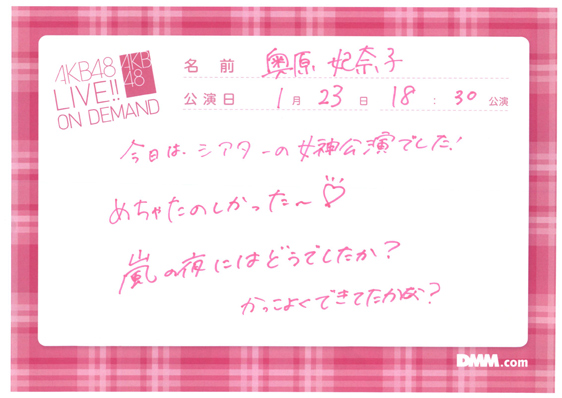 AKB48
LIVE!!
ON DEMAND
AKB
48
名前 奥原 妃奈子
公演日 1月 23日 18:30 公演
今日は、シアターの女神公演でした!
めちゃたのしかった〜♡
嵐の夜にはどうでしたか?
かっこよくできてたかな?
DMM.com